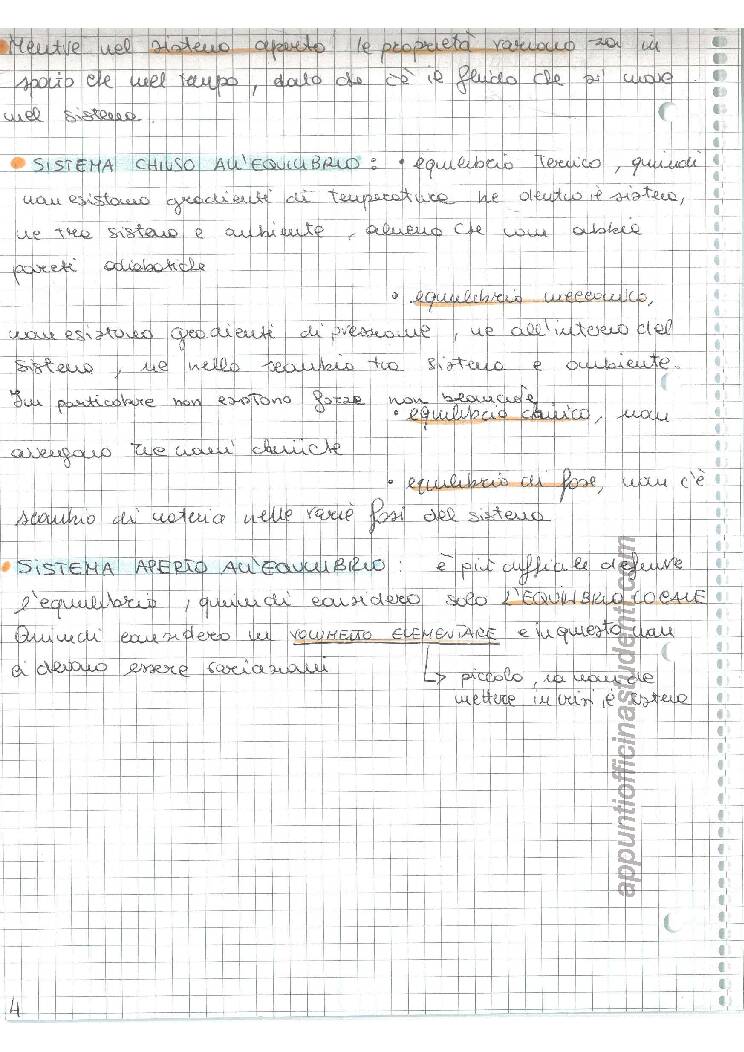 Mentre nel sistema aperto le proprietà variano sia in
spazio che nel tempo, dato che c'è il fluido che si muove
nel sistema.
SISTEMA CHIUSO ALL'EQUILIBRIO: • equilibrio termico, quindi
non esistono gradienti di temperatura ne dentro il sistema,
ne tra sistema e ambiente, almeno che non abbia
pareti adiabatiche
• equilibrio meccanico,
non esistono gradienti di pressione, ne all'interno del
sistema, ne nello scambio tra sistema e ambiente.
In particolare non esistono forze non bilanciate
• equilibrio chimico, non
avvengano reazioni chimiche
• equilibrio di fase, non c'è
scambio di materia nelle varie fasi del sistema
SISTEMA APERTO ALL'EQUILIBRIO: è più difficile definire
l'equilibrio, quindi considero solo L'EQUILIBRIO LOCALE
Quindi considero un VOLUMETTO ELEMENTARE e in questo non
ci devono essere variazioni
↳ piccolo, ma non da
mettere in crisi il sistema
appuntiofficinastudenti.com
4